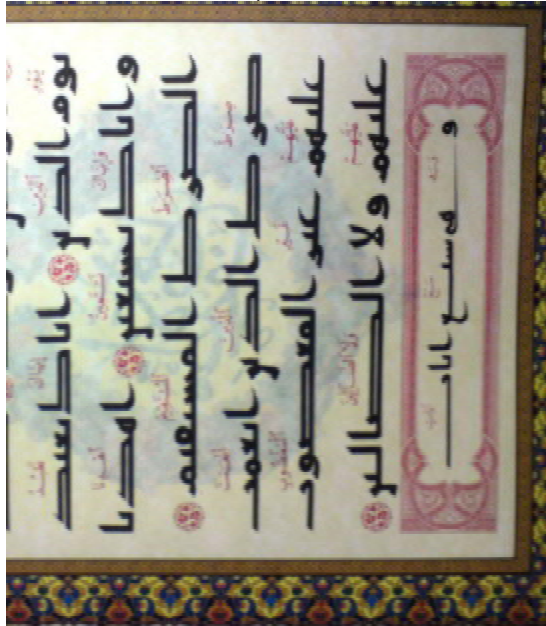 يوم الدين اياك نعبد
واياك نستعين اهدنا
الصرط المستقيم
صرط الذين انعمت
عليهم غير المغضوب
عليهم ولا الضالين
وهي سبع ايات